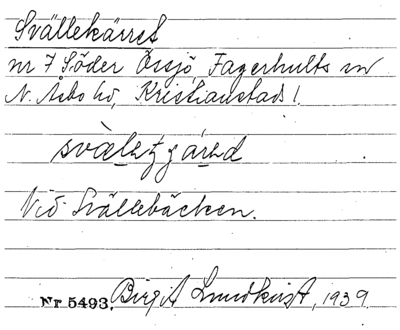 Svällekärret
nr 7 Söder Össjö, Fagerhults sn
N. Åsbo hd, Kristianstads l.
Vid Svällebäcken.
Nr 5493. Birgit Lundkvist, 1939